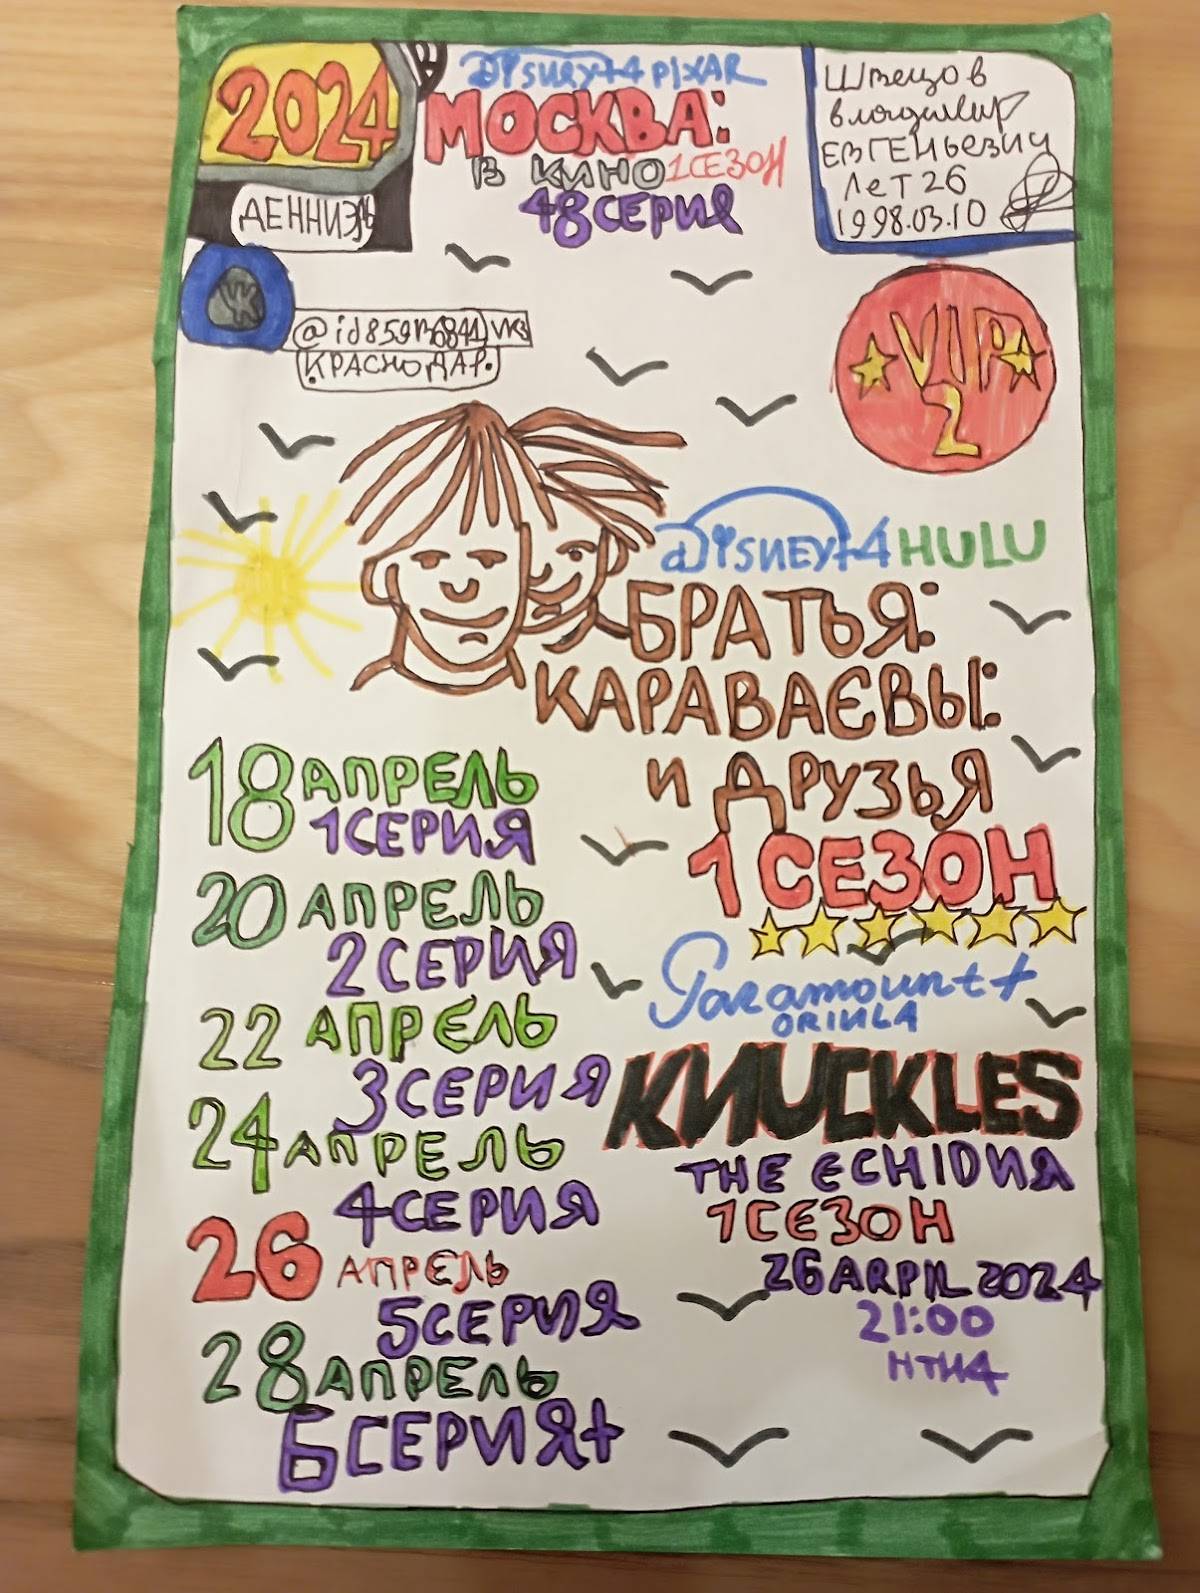 2024
ДЕННИЭЛЬ
Disney+4 PIXAR
МОСКВА:
В КИНО 1 СЕЗОН
48 СЕРИЯ
Швецов
Владимир
ЕВГЕНЬЕВИЧ
ЛЕТ 26
1998.03.10
VK
КРАСНОДАР.
VIP
2
Disney+4 HULU
БРАТЬЯ:
КАРАВАЄВЫ:
И ДРУЗЬЯ
1 СЕЗОН
18 АПРЕЛЬ
1 СЕРИЯ
20 АПРЕЛЬ
2 СЕРИЯ
22 АПРЕЛЬ
3 СЕРИЯ
24 АПРЕЛЬ
4 СЕРИЯ
26 АПРЕЛЬ
5 СЕРИЯ
28 АПРЕЛЬ
6 СЕРИЯ+
Paramount+
ORINLA
KNUCKLES
THE ECHIDNЯ
1 СЕЗОН
26 ARPIL 2024
21:00
НТН4